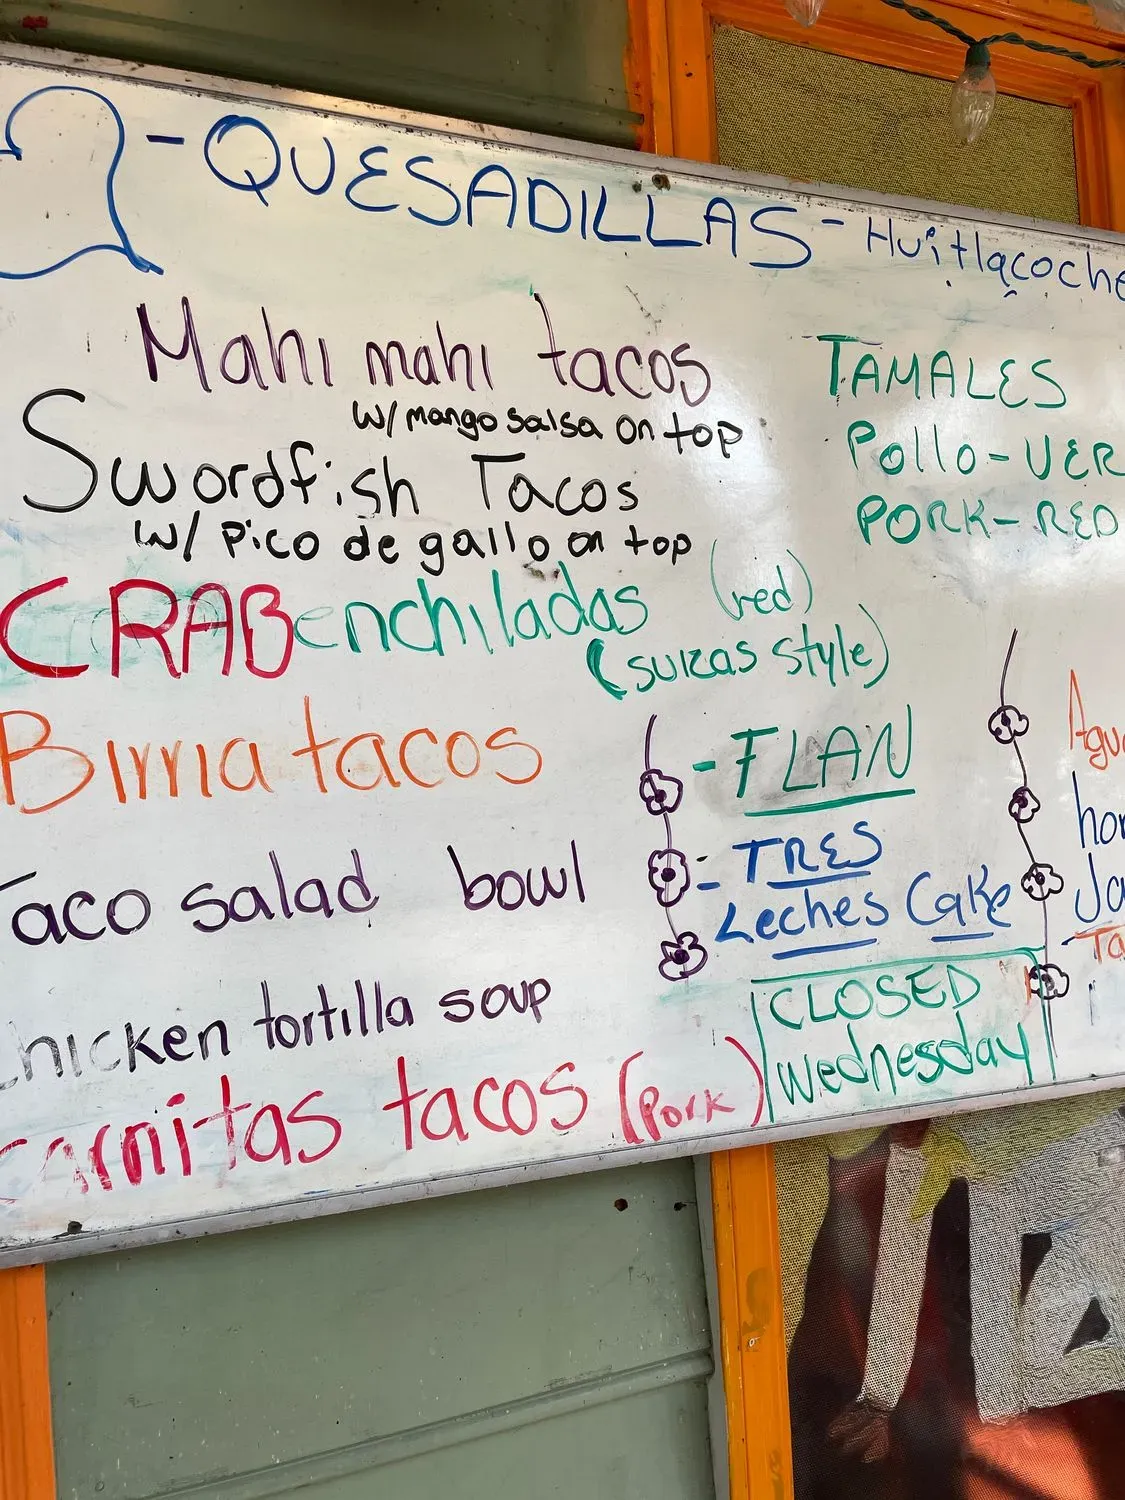 2 - QUESADILLAS - Huitlacoche
Mahi mahi tacos
w/ mango salsa on top
Swordfish Tacos
w/ pico de gallo on top
CRAB enchiladas (red)
(suizas style)
Birria tacos
Taco salad bowl
Chicken tortilla soup
Carnitas tacos (pork)
TAMALES
Pollo - VER
PORK - RED
- FLAN
- TRES
- Leches Cake
CLOSED
wednesday
Agu
hor
Ja
Ta